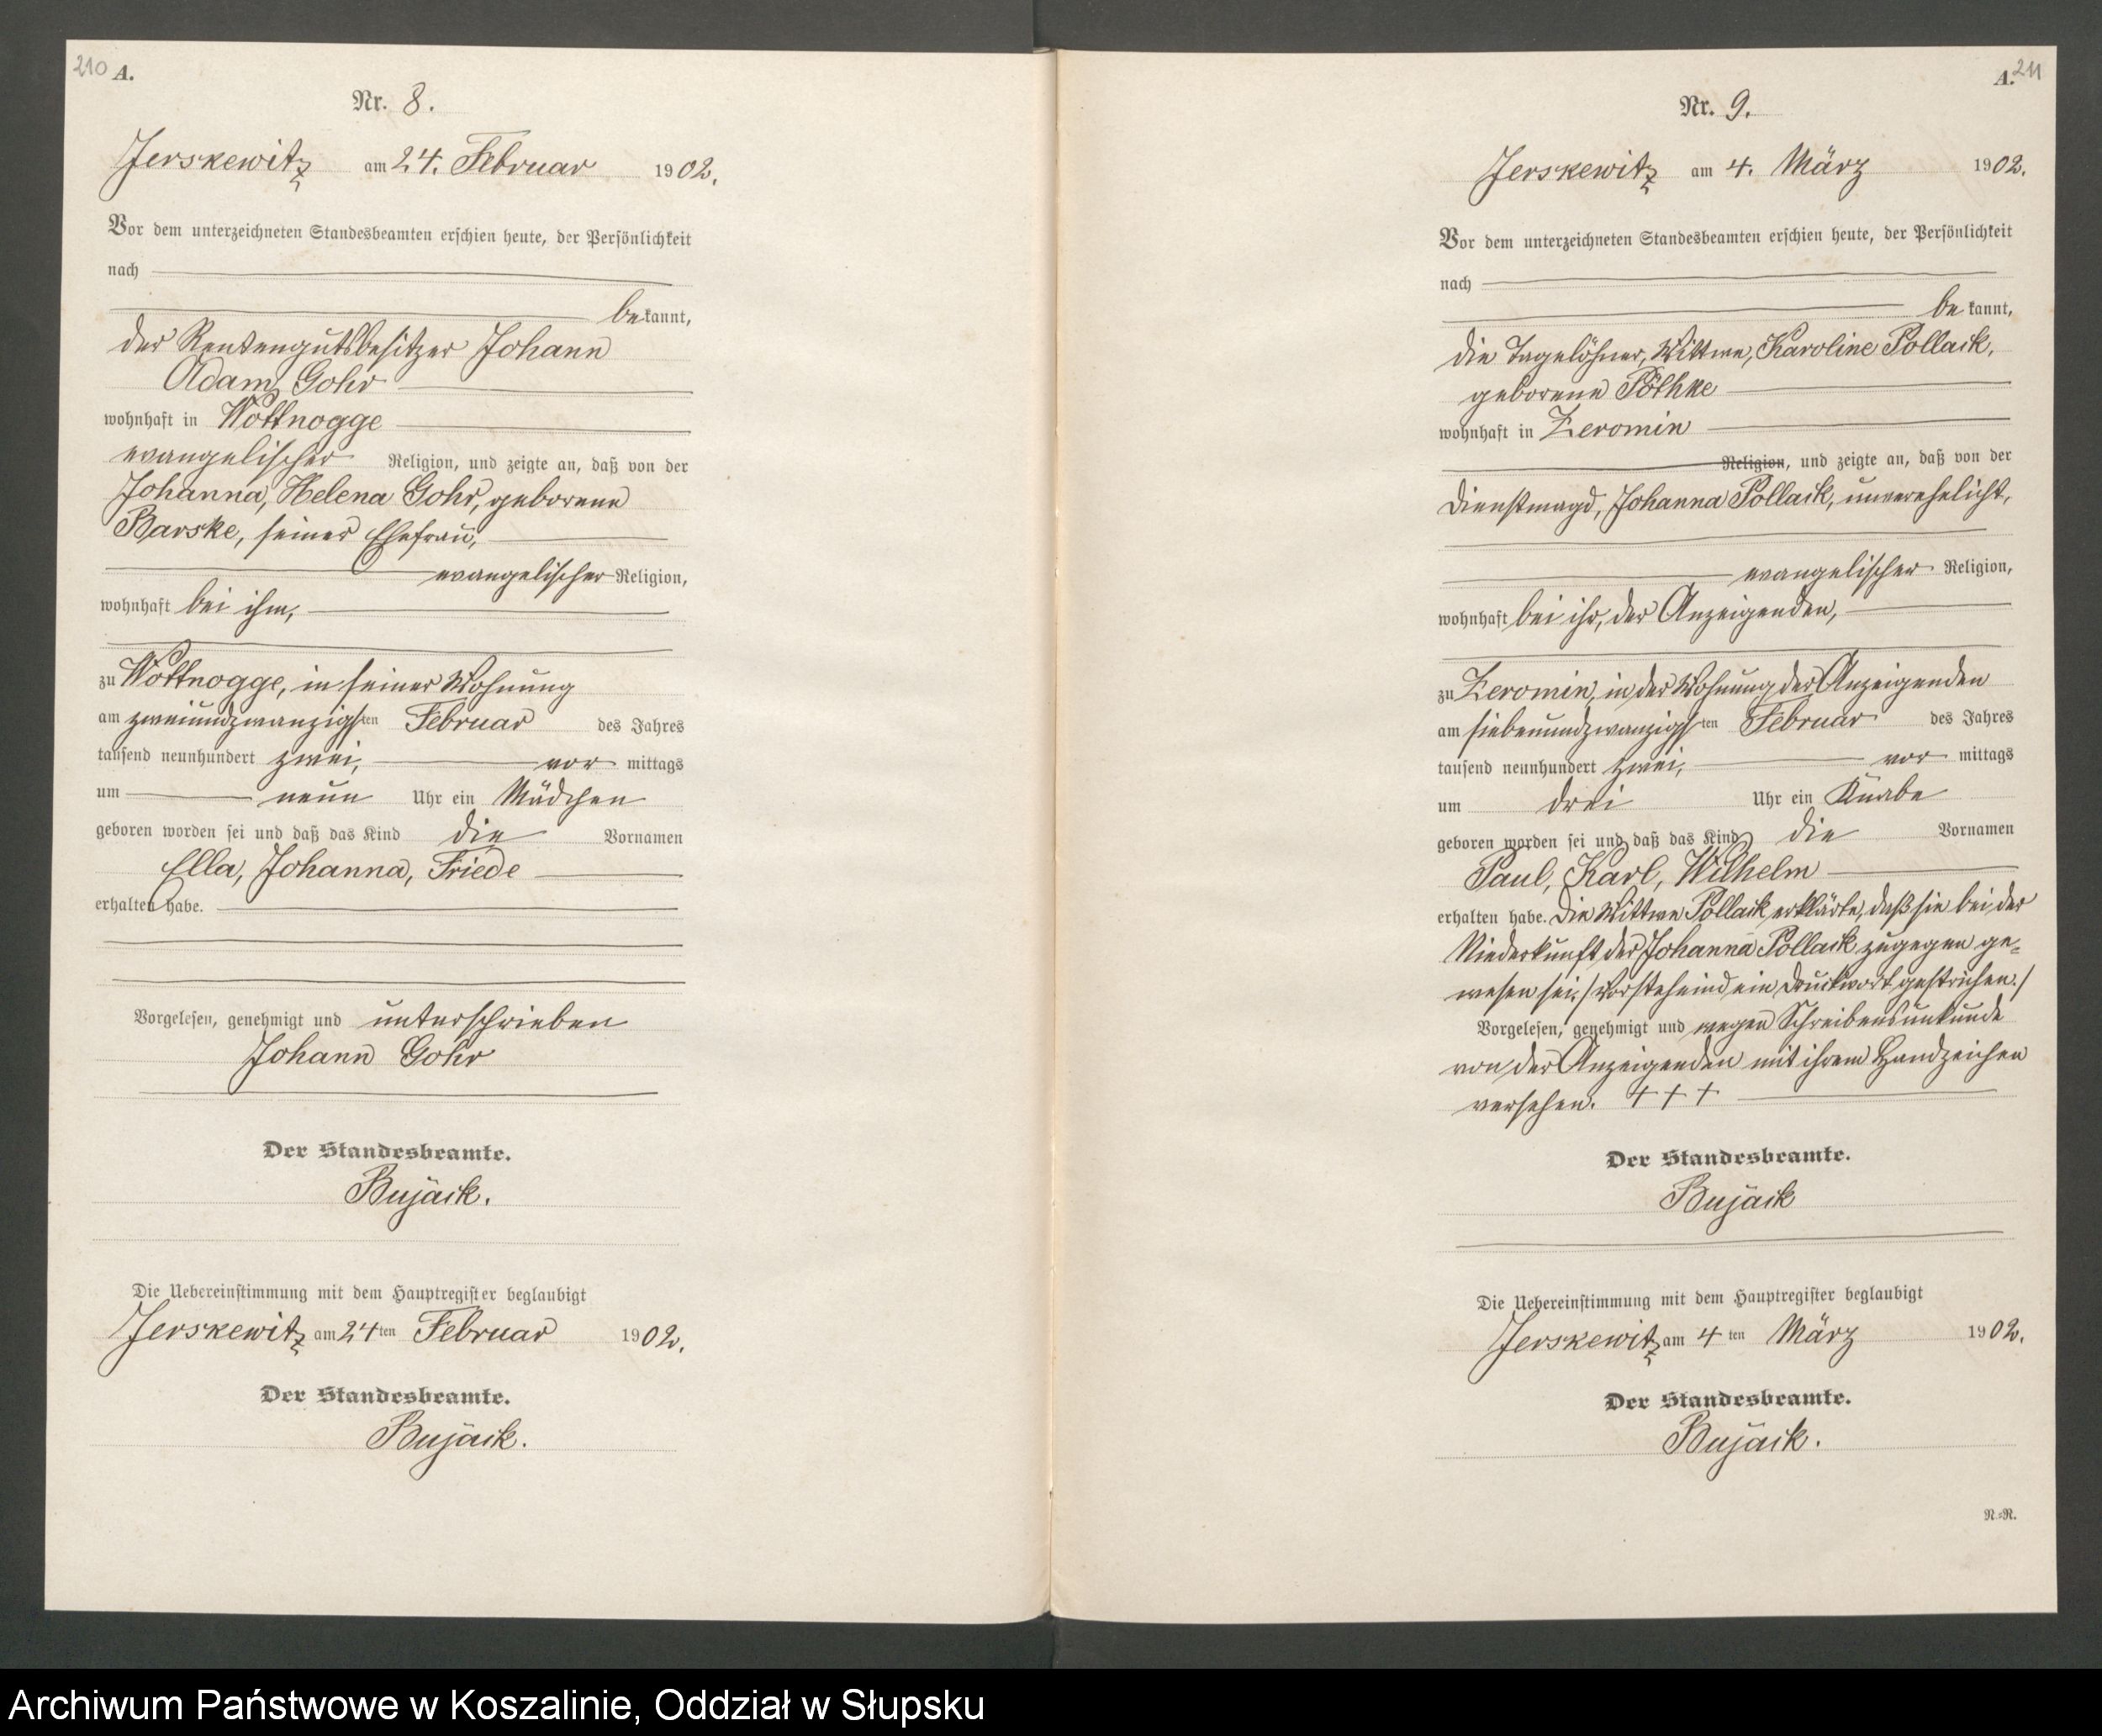 210 A.
Nr. 8.
Jerskewitz am 24. Februar 1902.
Vor dem unterzeichneten Standesbeamten erschien heute, der Persönlichkeit
nach
bekannt,
der Rentengutsbesitzer Johann
Adam Gohr
wohnhaft in Wottnogge
evangelischer Religion, und zeigte an, daß von der
Johanna, Helena Gohr, geborene
Barske, seiner Ehefrau,
evangelischer Religion,
wohnhaft bei ihm,
zu Wottnogge, in seiner Wohnung
am zweiundzwanzigsten Februar des Jahres
tausend neunhundert zwei, vormittags
um neun Uhr ein Mädchen
geboren worden sei und daß das Kind die Vornamen
Ella, Johanna, Friede
erhalten habe.
Vorgelesen, genehmigt und unterschrieben
Johann Gohr
Der Standesbeamte.
Bujack.
Die Uebereinstimmung mit dem Hauptregister beglaubigt
Jerskewitz am 24ten Februar 1902.
Der Standesbeamte.
Bujack.
A. 211
Nr. 9.
Jerskewitz am 4. März 1902.
Vor dem unterzeichneten Standesbeamten erschien heute, der Persönlichkeit
nach
bekannt,
die Tagelöhner, Wittwe, Karoline Pollack,
geborene Pöthke
wohnhaft in Zeromin
Religion, und zeigte an, daß von der
Dienstmagd, Johanna Pollack, unverehelicht,
evangelischer Religion,
wohnhaft bei ihr, der Anzeigenden,
zu Zeromin, in der Wohnung der Anzeigenden
am siebenundzwanzigsten Februar des Jahres
tausend neunhundert zwei, vormittags
um drei Uhr ein Knabe
geboren worden sei und daß das Kind die Vornamen
Paul, Karl, Wilhelm
erhalten habe. Die Wittwe Pollack erklärte, daß sie bei der
Niederkunft der Johanna Pollack zugegen ge-
wesen sei. / Vorstehend ein Druckwort gestrichen. /
Vorgelesen, genehmigt und wegen Schreibensunkunde
von der Anzeigenden mit ihrem Handzeichen
versehen. + + +
Der Standesbeamte.
Bujack
Die Uebereinstimmung mit dem Hauptregister beglaubigt
Jerskewitz am 4ten März 1902.
Der Standesbeamte.
Bujack.
N=R.
Archiwum Państwowe w Koszalinie, Oddział w Słupsku